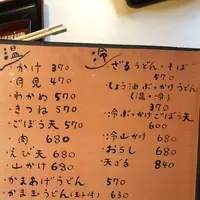 温
・かけ 370
・月見 470
・わかめ 570
・きつね 570
・ごぼう天 570
・肉 680
・えび天 680
・山かけ 680
・かまあげうどん
・かま玉うどん(玉子付) 630
冷
・ざるうどん・そば
570
・しょう油ぶっかけうどん
(温・冷)
370
・冷ぶっかけごぼう天
600
・冷山かけ 680
・おろし 680
・天ざる 840
570